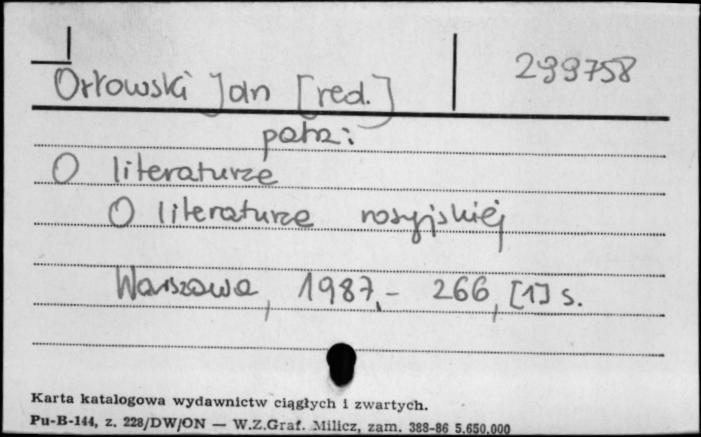 299758
Orłowski Jan [red.]
patrz:
O literaturze
O literaturze rosyjskiej
Warszawa, 1987.- 266, [1] s.
Karta katalogowa wydawnictw ciągłych i zwartych.
Pu-B-144, z. 228/DW/ON — W.Z.Graf. Milicz, zam. 388-86 5.650.000